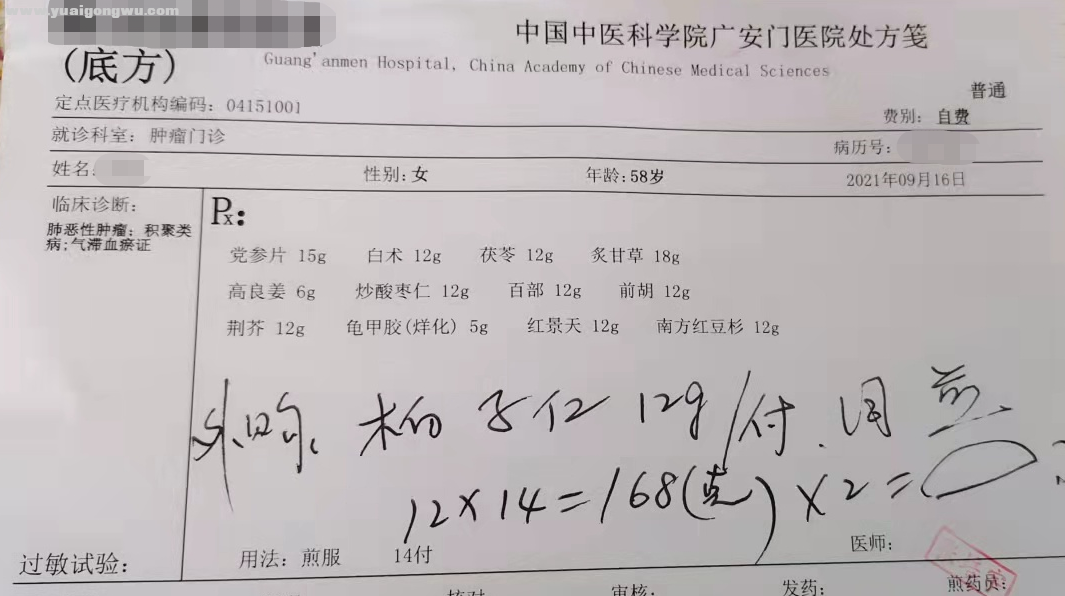 www.yuaigongwu.com
中国中医科学院广安门医院处方笺
(底方)
Guang'anmen Hospital, China Academy of Chinese Medical Sciences
普通
定点医疗机构编码: 04151001
费别: 自费
就诊科室: 肿瘤门诊
病历号:
姓名: 性别:女 年龄:58岁 2021年09月16日
临床诊断:
肺恶性肿瘤; 积聚类
病;气滞血瘀证
Rx:
党参片 15g 白术 12g 茯苓 12g 炙甘草 18g
高良姜 6g 炒酸枣仁 12g 百部 12g 前胡 12g
荆芥 12g 龟甲胶(烊化) 5g 红景天 12g 南方红豆杉 12g
外购、柏子仁 12g/付.同煎
12×14=168(克)×2=
过敏试验: 用法: 煎服 14付 医师:
核对 审核: 发药: 煎药员: